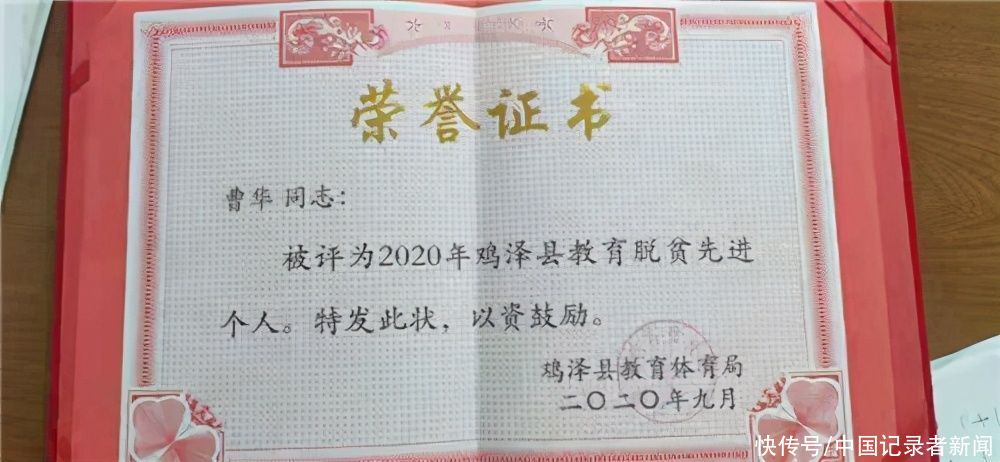 荣誉证书
曹华 同志：
被评为2020年鸡泽县教育脱贫先进
个人。特发此状，以资鼓励。
鸡泽县教育体育局
二〇二〇年九月
快传号/中国记录者新闻